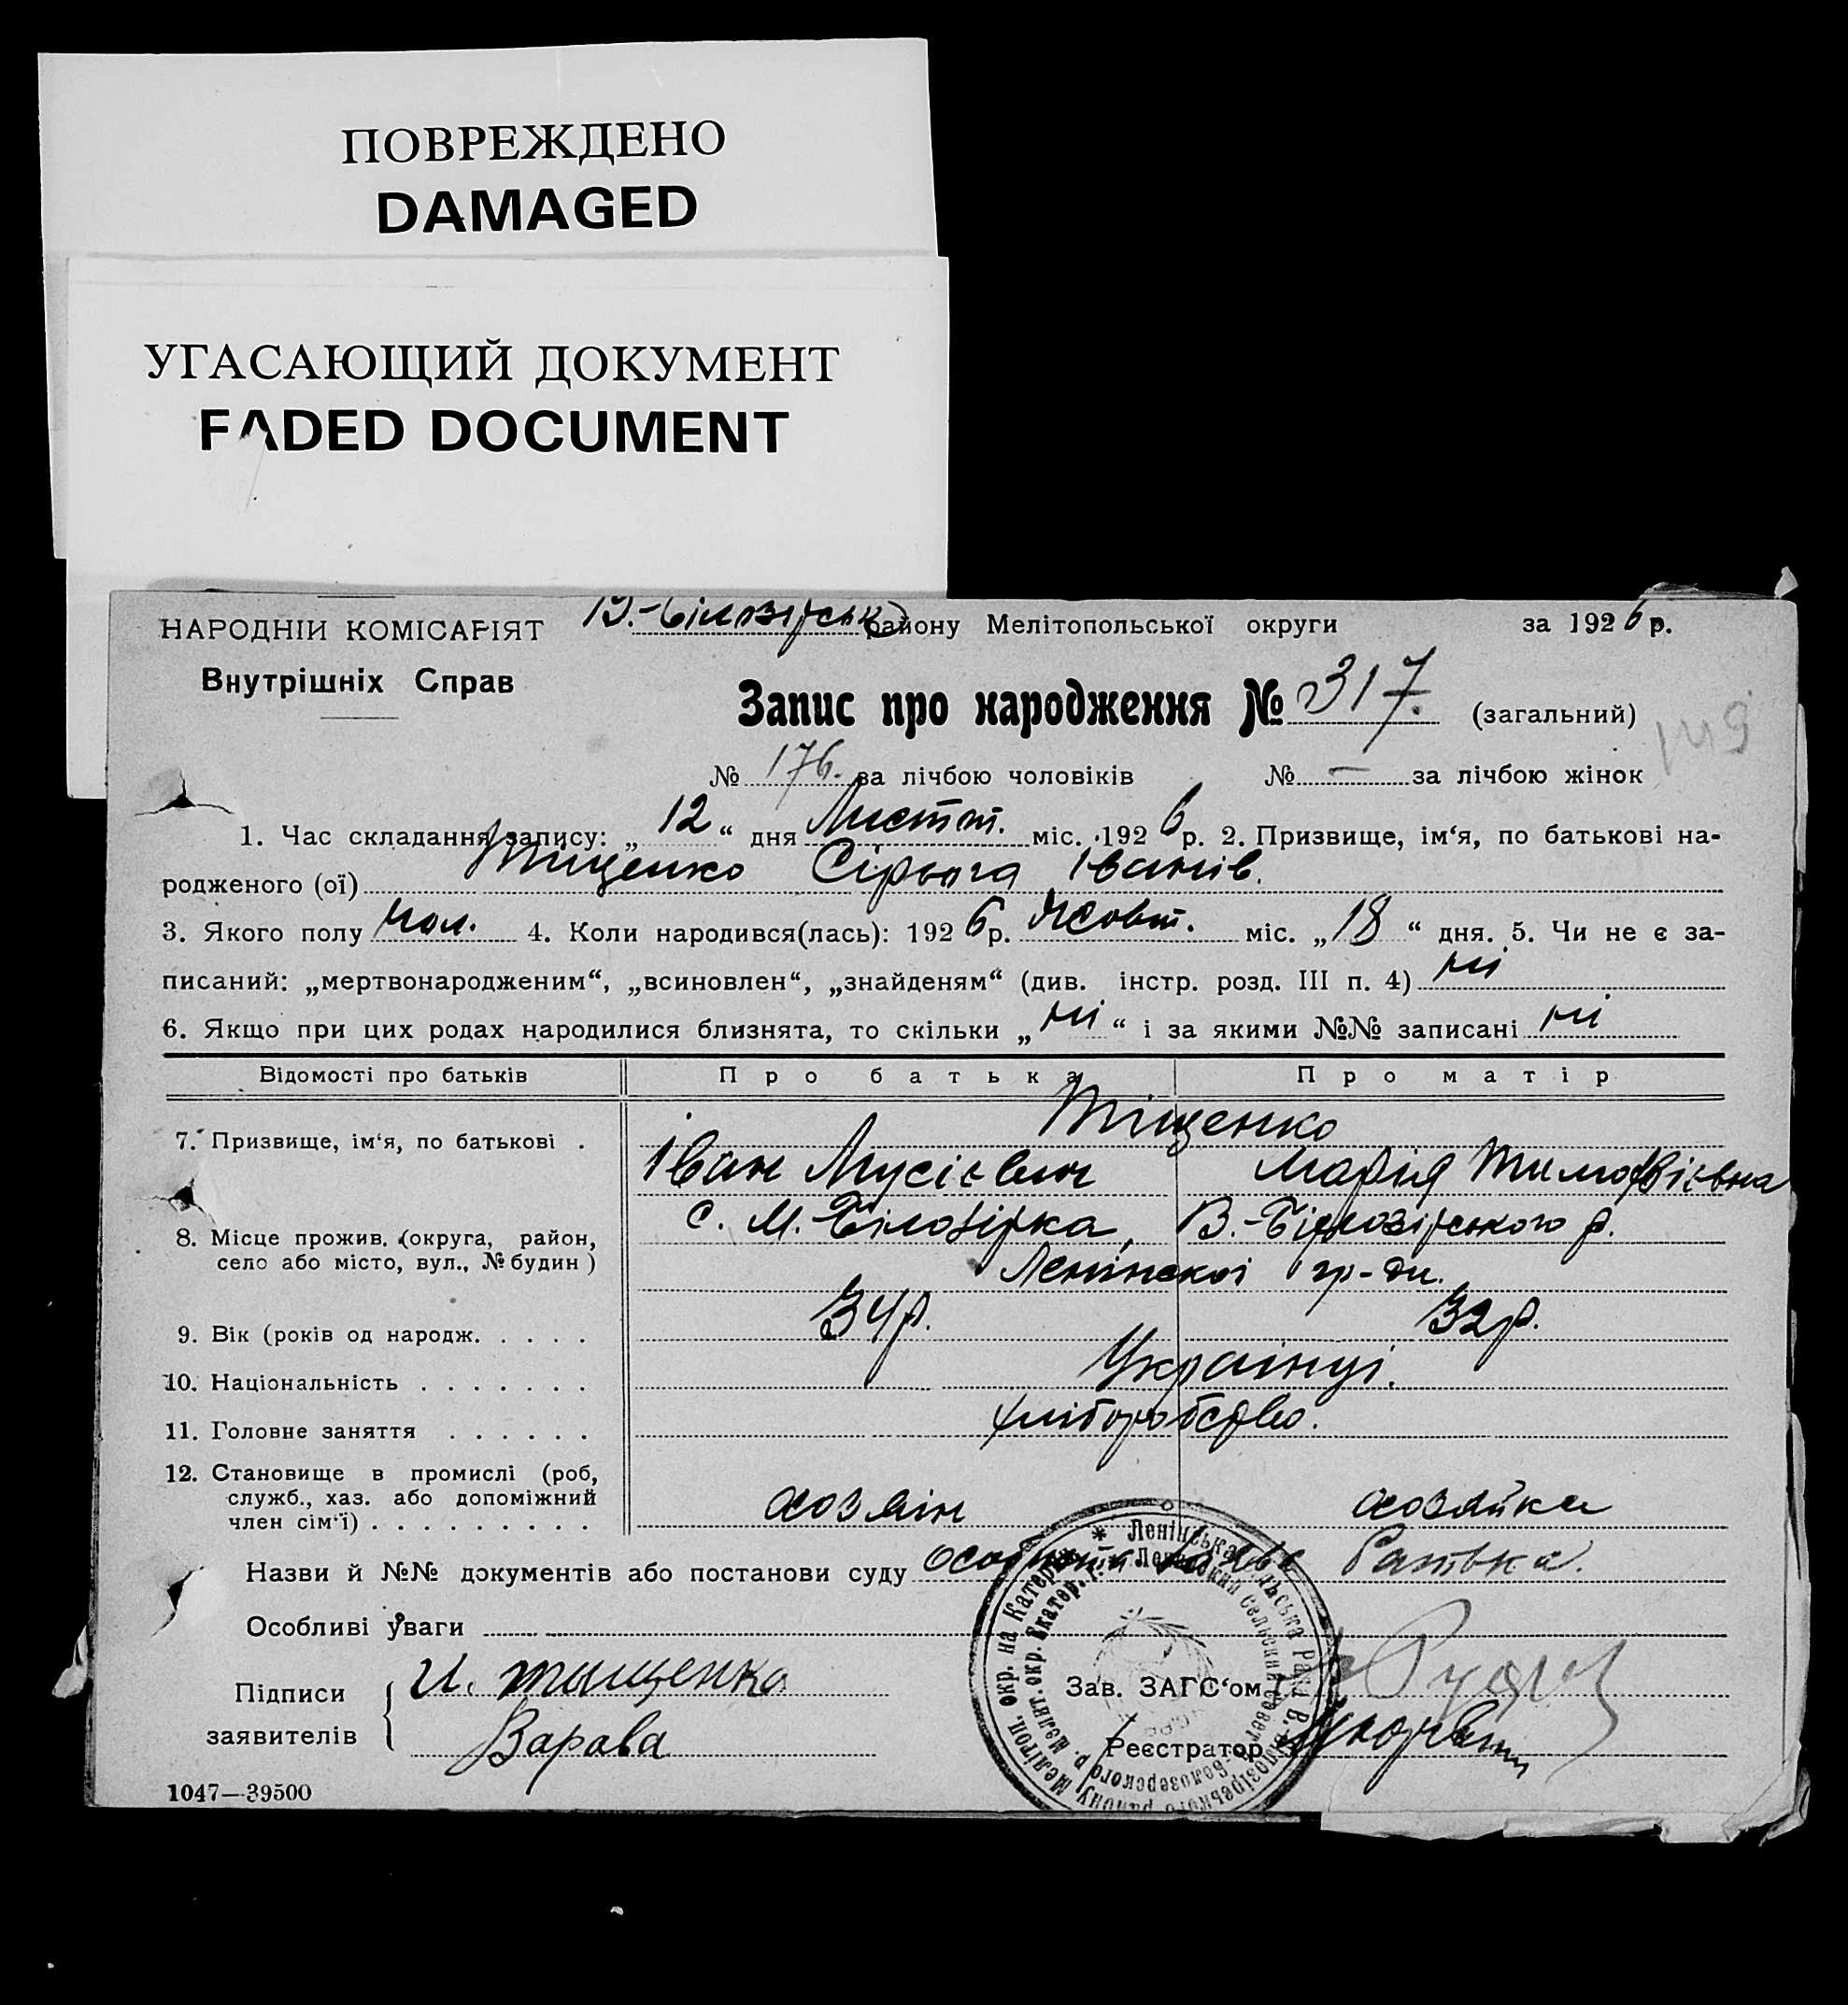 ПОВРЕЖДЕНО
DAMAGED
УГАСАЮЩИЙ ДОКУМЕНТ
FADED DOCUMENT
НАРОДНІЙ КОМІСАРІЯТ
Внутрішніх Справ
В.-Білозірськ району Мелітопольської округи за 1926 р.
Запис про народження № 317. (загальний)
149
№ 176. за лічбою чоловіків № — за лічбою жінок
1. Час складання запису: „12“ дня Листоп. міс. 1926 р. 2. Призвище, ім‘я, по батькові на-
родженого (ої) Тищенко Сірьога Іванів.
3. Якого полу чол. 4. Коли народився(лась): 1926 р. Жовт. міс. „18“ дня. 5. Чи не є за-
писаний: „мертвонародженим“, „всиновлен“, „знайденям“ (див. інстр. розд. III п. 4) ні
6. Якщо при цих родах народилися близнята, то скільки „ні“ і за якими №№ записані ні
Відомості про батьків Про батька Про матір
Тіщенко
7. Призвище, ім‘я, по батькові .
Іван Мусієвич Марія Тимофвієвна
с. М. Білозірка, В.-Білозірського р.
8. Місце прожив. (округа, район,
село або місто, вул., № будин )
Ленінскоі гр-ди.
9. Вік (років од народж. . . . . 34 р. 32 р.
10. Національність . . . . . . . Украінці.
11. Головне заняття . . . . . . хліборобство.
12. Становище в промислі (роб,
служб., хаз. або допоміжний
член сім‘ї) . . . . . . . . . хозяін хозяйка
Назви й №№ документів або постанови суду Батька.
Особливі уваги
Підписи
заявителів
И. тыщенко
Варава
Зав. ЗАГС‘ом
Реєстратор
Ленінська Сільська Рада В. Білозірського району Мелітоп. окр. на Катер.
Ленинский сельский совет В.-Белозерского р. Мелит. окр. Екатер. г.
1047—39500